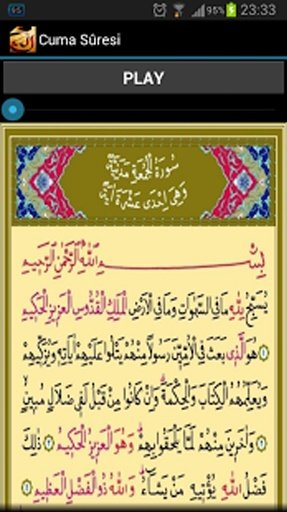 65 95% 23:33
Cuma Sûresi
PLAY
سُورَةُ الْجُمُعَةِ مَدَنِيَّةٌ
وَهِيَ اِحْدٰى عَشْرَةَ اٰيَةً
بِسْمِ اللّٰهِ الرَّحْمٰنِ الرَّحِيمِ
يُسَبِّحُ لِلّٰهِ مَا فِي السَّمٰوَاتِ وَمَا فِي الْاَرْضِ الْمَلِكِ الْقُدُّوسِ الْعَزِيزِ الْحَكِيمِ
﴿١﴾ هُوَ الَّذِي بَعَثَ فِي الْاُمِّيِّنَ رَسُولًا مِنْهُمْ يَتْلُوا عَلَيْهِمْ اٰيَاتِهِ وَيُزَكِّيهِمْ
وَيُعَلِّمُهُمُ الْكِتَابَ وَالْحِكْمَةَ وَاِنْ كَانُوا مِنْ قَبْلُ لَفِي ضَلَالٍ مُبِينٍ
﴿٢﴾ وَاٰخَرِينَ مِنْهُمْ لَمَّا يَلْحَقُوا بِهِمْ وَهُوَ الْعَزِيزُ الْحَكِيمُ ﴿٣﴾ ذٰلِكَ
فَضْلُ اللّٰهِ يُؤْتِيهِ مَنْ يَشَاءُ وَاللّٰهُ ذُو الْفَضْلِ الْعَظِيمِ ﴿٤﴾